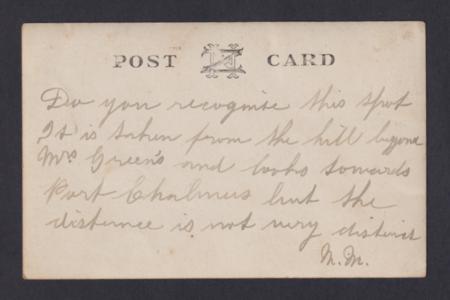 POST CARD
Do you recognise this spot
It is taken from the hill beyond
Mrs Green's and looks towards
Port Chalmers but the
distance is not very distinct
N.M.